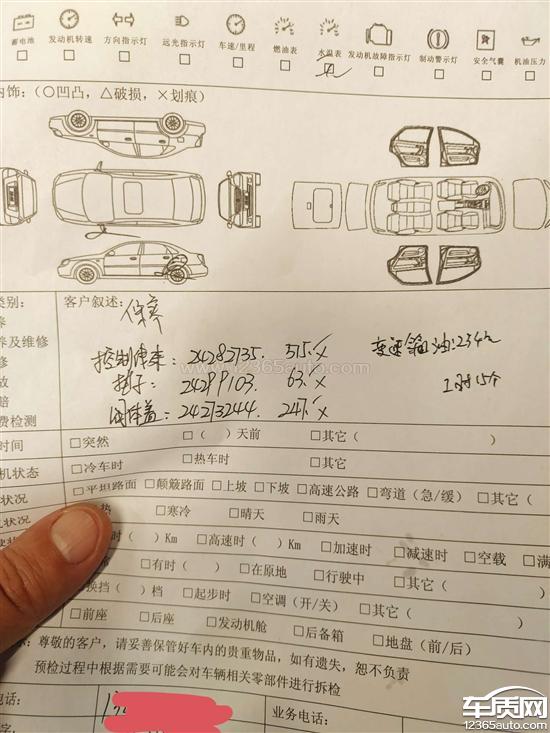 蓄电池 发动机转速 方向指示灯 远光指示灯 车速/里程 燃油表 水温表 发动机故障指示灯 制动警示灯 安全气囊 机油压力
内饰：（○凹凸，△破损，×划痕）
类别： 客户叙述：保养
养
养及维修 控制伟来：24282735. 515.× 变速箱油：234元
修
放 24299103. 63.×
赔 阀体盖：24273244. 247.×
费检测
时间 □突然 □（ ）天前 □其它（ ）
机状态 □冷车时 □热车时 □其它
状况 □平坦路面 □颠簸路面 □上坡 □下坡 □高速公路 □弯道（急/缓） □其它（
热 □寒冷 □晴天 □雨天
时（ ）Km □高速时（ ）Km □加速时 □减速时 □空载 □满
□有时（ ） □在原地 □行驶中 □其它（
换挡（ ）档 □起步时 □空调（开/关） □其它（
□前座 □后座 □发动机舱 □后备箱 □地盘（前/后）
示：尊敬的客户，请妥善保管好车内的贵重物品，如有遗失，恕不负责
预检过程中根据需要可能会对车辆相关零部件进行拆检
电话： 业务电话：
字：
www.12365auto.com
车质网
12365auto.com